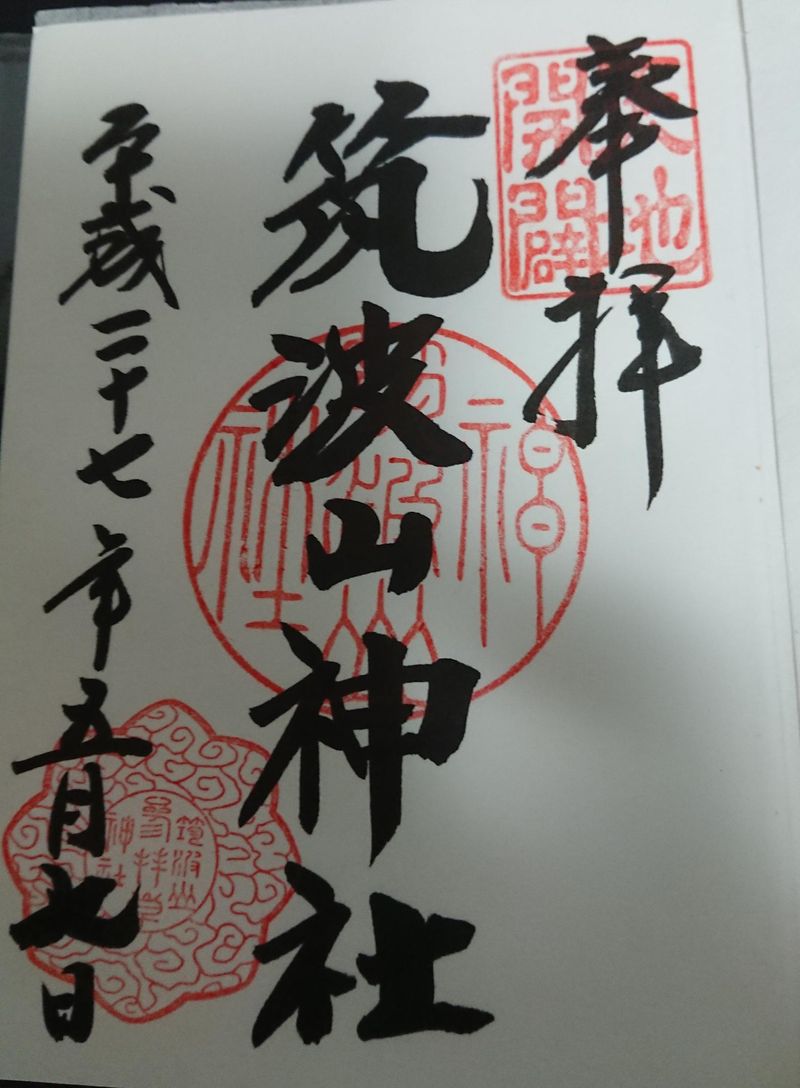 奉拝
天地開闢
筑波山神社
筑波山神社
平成二十七年五月七日
筑波山
神社